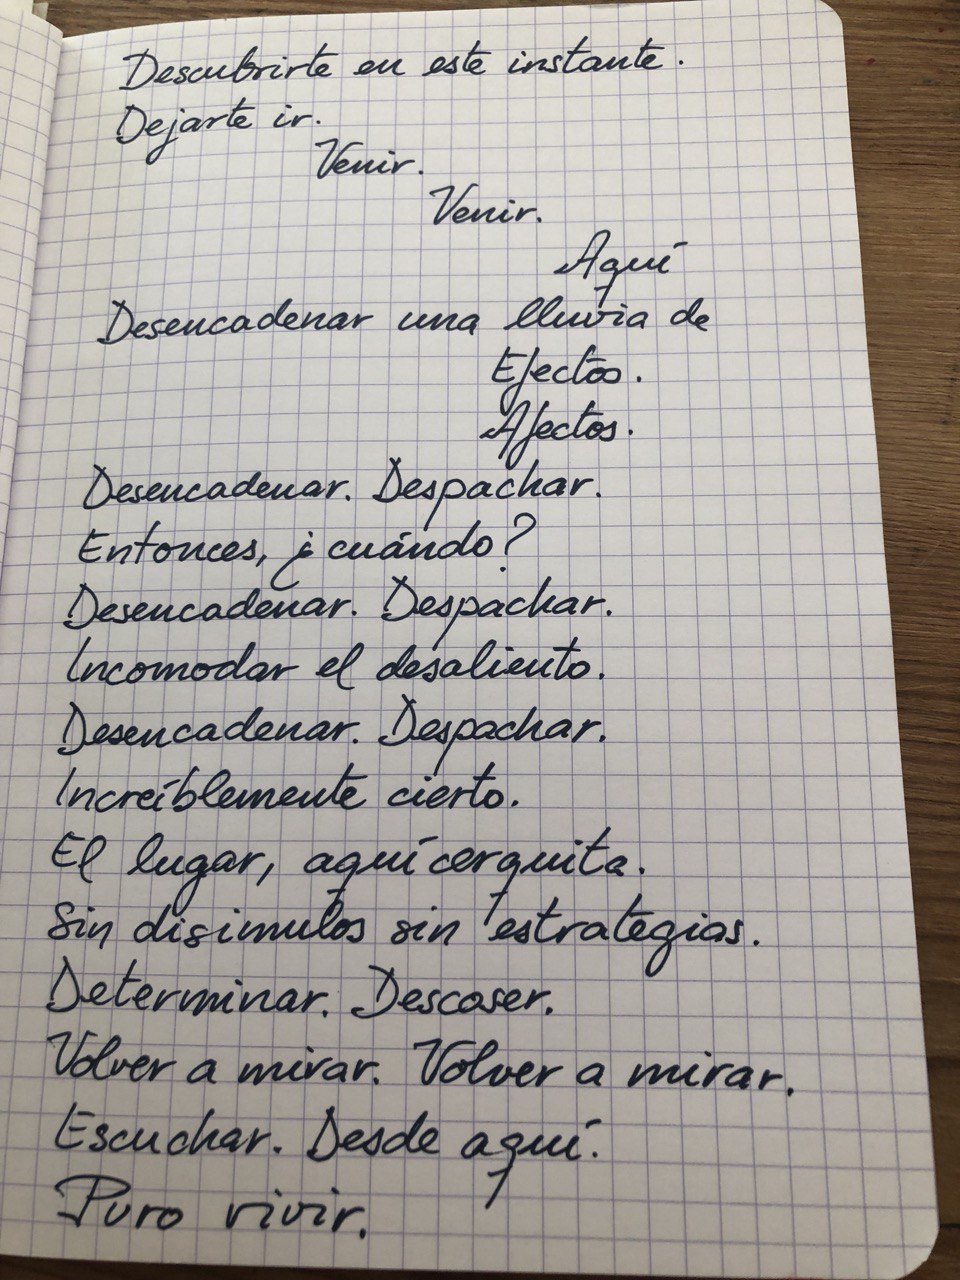 Descubrirte en este instante.
Dejarte ir.
Venir.
Venir.
Aquí
Desencadenar una lluvia de
Efectos.
Afectos.
Desencadenar. Despachar.
Entonces, ¿cuándo?
Desencadenar. Despachar.
Incomodar el desaliento.
Desencadenar. Despachar.
Increíblemente cierto.
El lugar, aquí cerquita.
Sin disimulos sin estrategias.
Determinar. Descoser.
Volver a mirar. Volver a mirar.
Escuchar. Desde aquí.
Puro vivir.